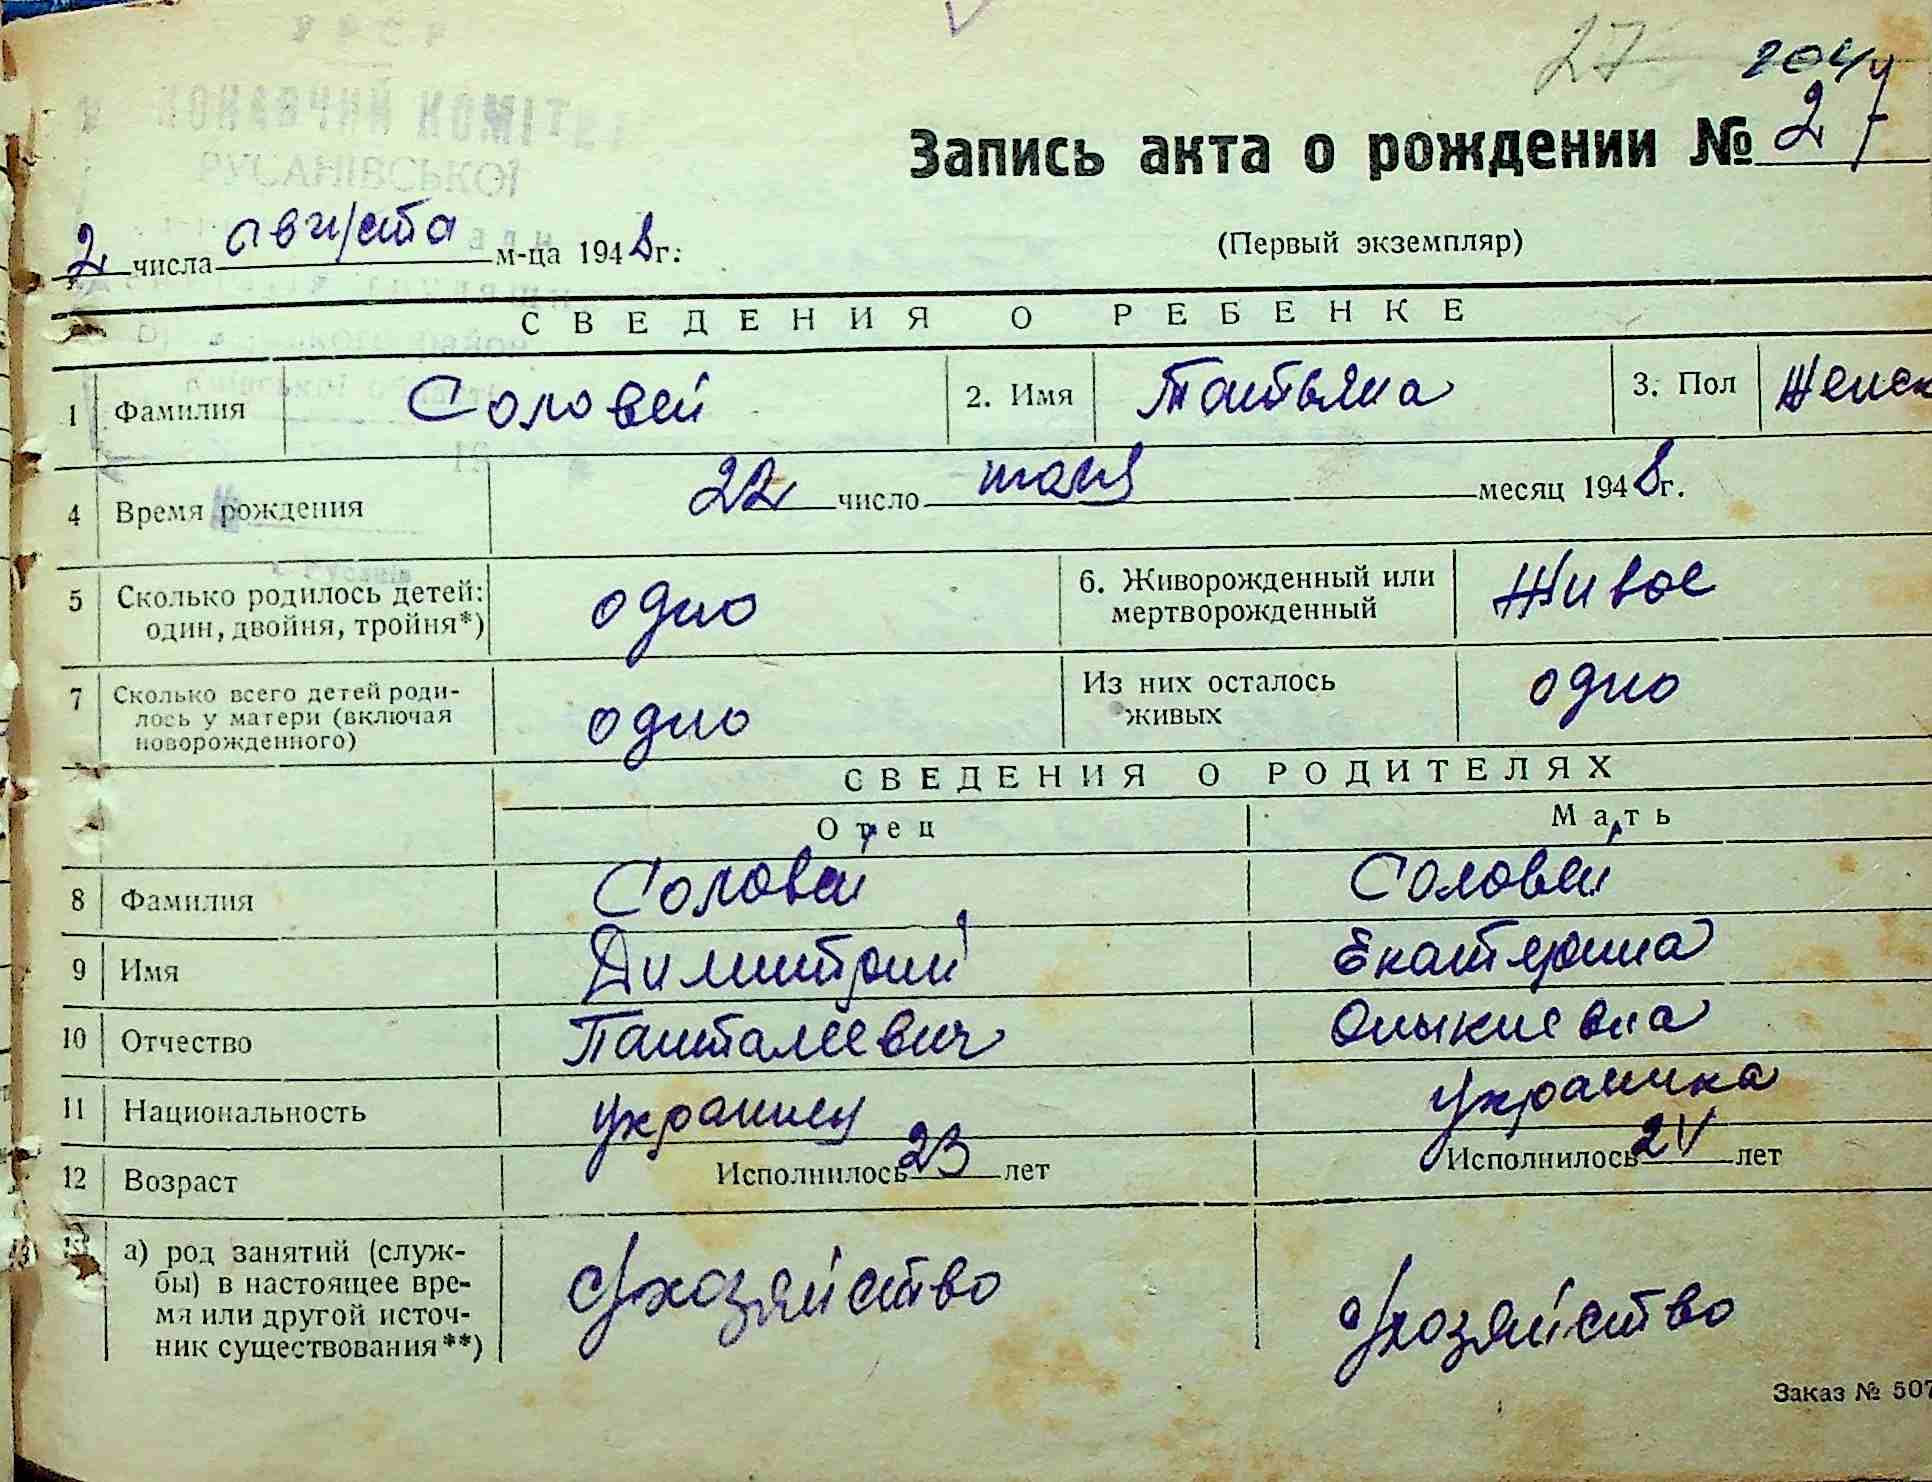 27 204
Запись акта о рождении № 27
2 числа августа м-ца 1948 г.
(Первый экземпляр)
СВЕДЕНИЯ О РЕБЕНКЕ
1 Фамилия Соловей 2. Имя Татьяна 3. Пол Женск
4 Время рождения 22 число мая месяц 1948 г.
5 Сколько родилось детей: один, двойня, тройня*) одно 6. Живорожденный или мертворожденный Живое
7 Сколько всего детей роди-
лось у матери (включая
новорожденного) одно Из них осталось живых одно
СВЕДЕНИЯ О РОДИТЕЛЯХ
Отец Мать
8 Фамилия Соловей Соловей
9 Имя Димитрий Екатерина
10 Отчество Панталеевич
11 Национальность украинец украинка
12 Возраст Исполнилось 23 лет Исполнилось 24 лет
13 а) род занятий (служ-
бы) в настоящее вре-
мя или другой источ-
ник существования**) с/хозяйство с/хозяйство
Заказ № 507
КОНАВЧИЙ КОМІТЕТ
РУСАНІВСЬКОЇ